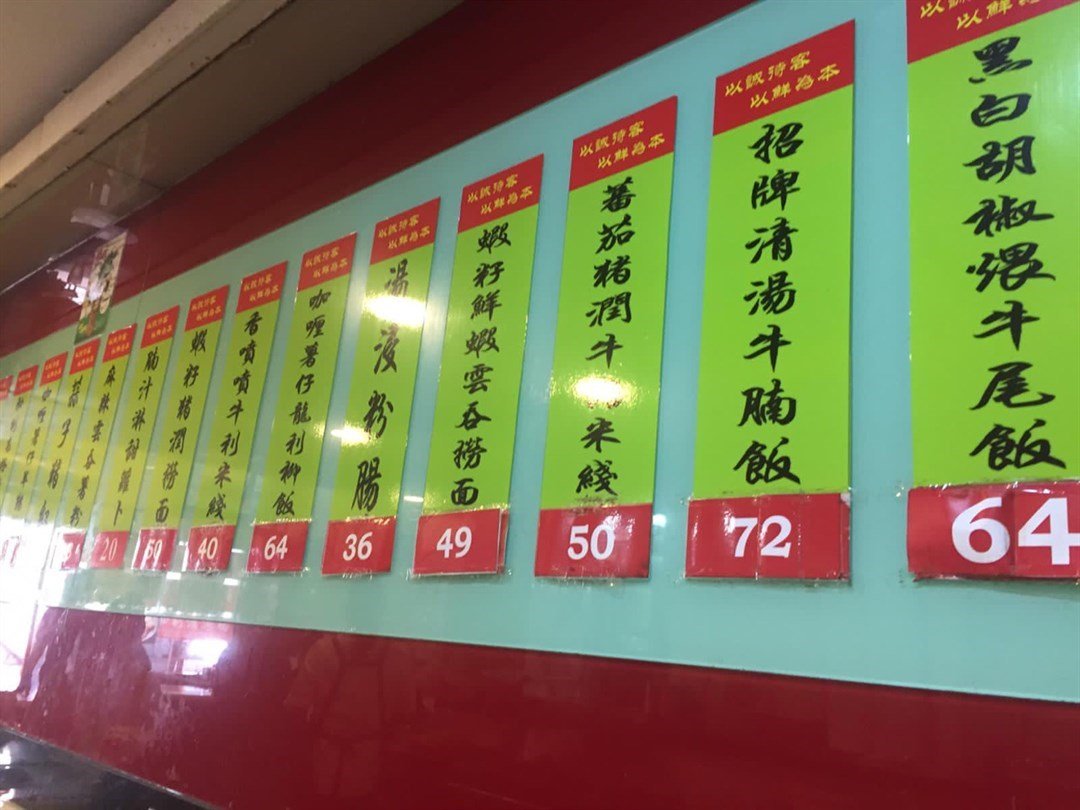 以誠待客
以鮮為本
黑白胡椒煨牛尾飯
64
以誠待客
以鮮為本
招牌清湯牛腩飯
72
以誠待客
以鮮為本
蕃茄豬潤牛
米綫
50
以誠待客
以鮮為本
蝦籽鮮蝦雲吞撈面
49
以誠待客
以鮮為本
湯浸粉腸
36
以誠待客
以鮮為本
咖喱薯仔龍利柳飯
64
以誠待客
以鮮為本
香噴噴牛利米綫
40
以誠待客
以鮮為本
蝦籽豬潤撈面
50
以誠待客
以鮮為本
腩汁淋甜蘿卜
20
以誠待客
以鮮為本
麻辣雲吞薯粉